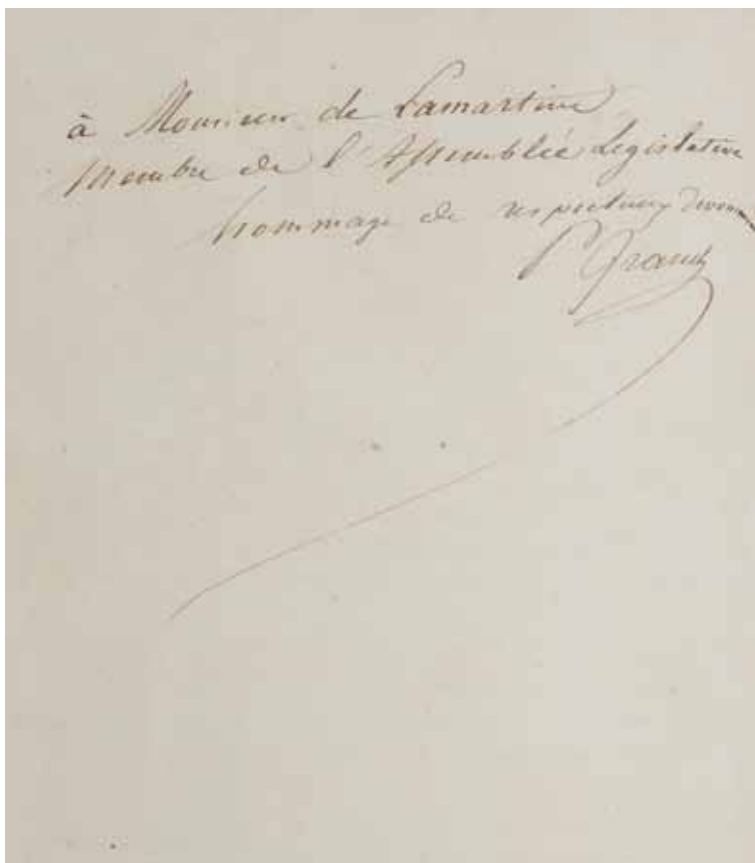 à Monsieur de Lamartine
Membre de l'Assemblée Legislative
hommage de respectueux
P Grand